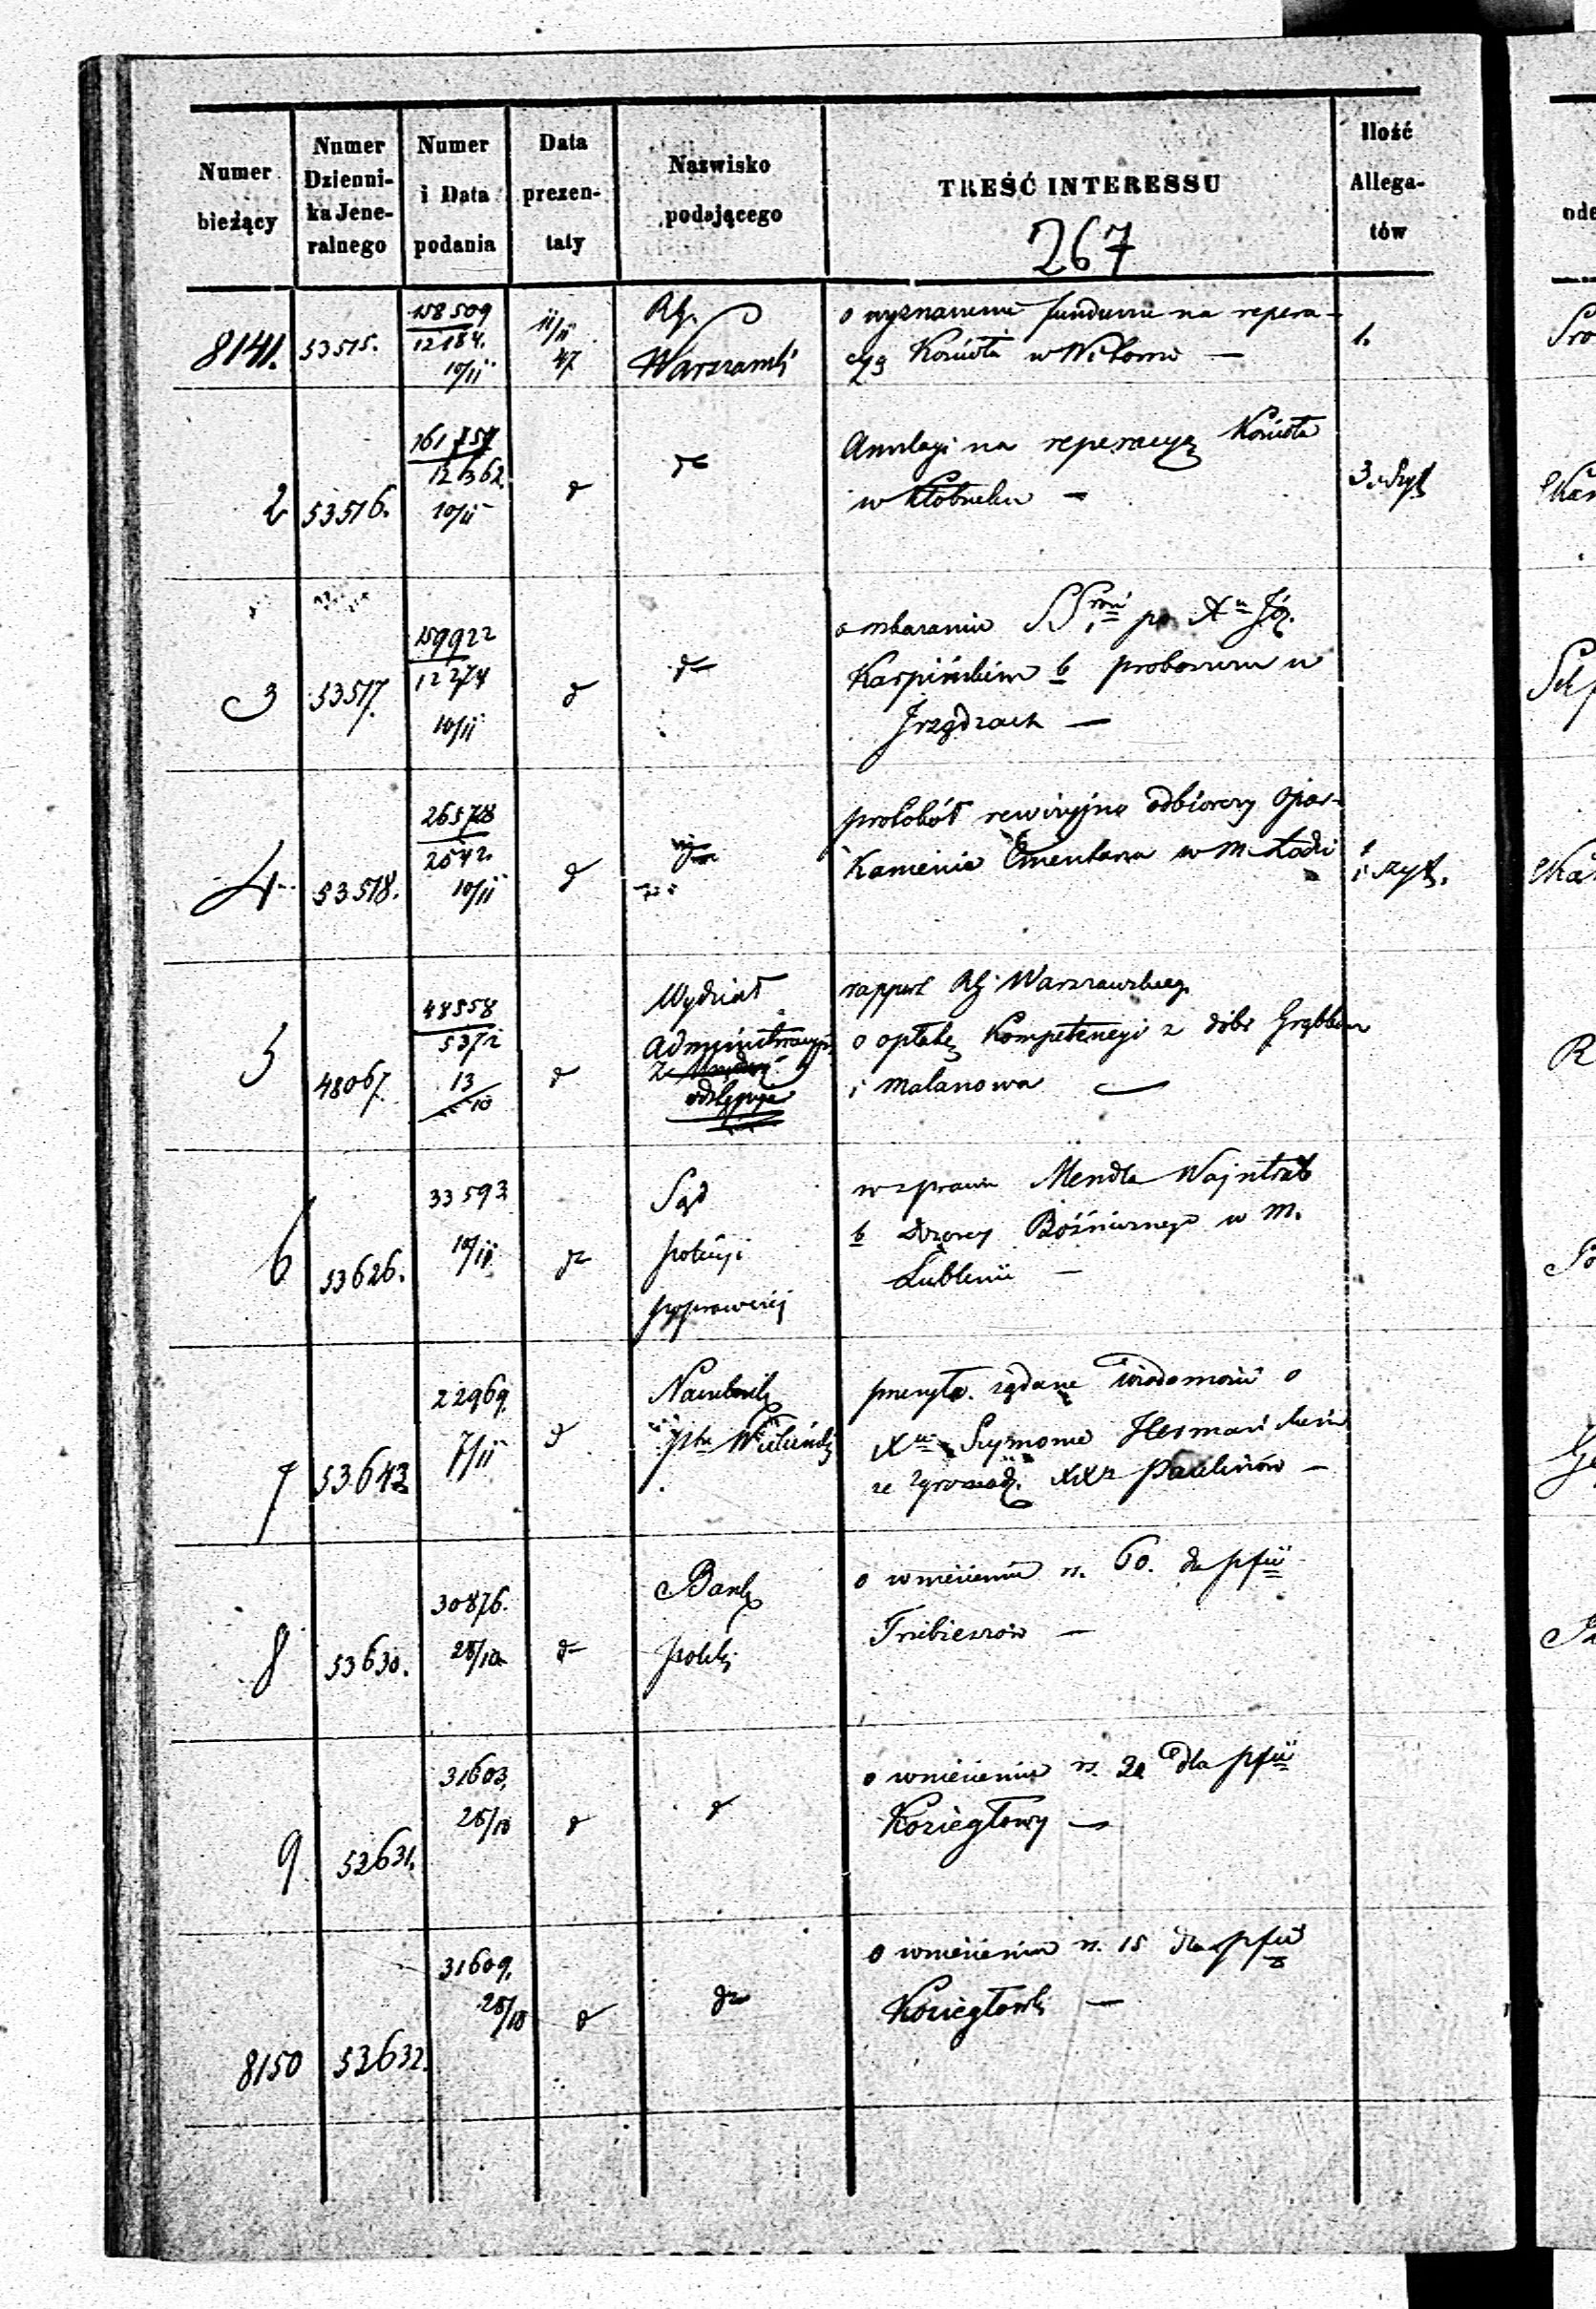 Numer bieżący
Numer Dzienni-ka Jene-ralnego
Numer i Data podania
Data prezen-taty
Nazwisko podającego
TREŚĆ INTERESSU
Ilość Allega-tów
267
8141. 53515. 158509 12184. 10/11 11/11 47 Rz. Warszawski
o wyznaczenie funduszu na repera-
cyą Kościoła w Witoni —
1.
2 53516. 161757 12362. 10/11 do
Anszlagi na reperacyą Kościoła
w Kłobucku —
3
3 53517. 159922 12274 10/11
po Xu Józ.
Karpińskim b proboszczu w
—
4 53518. 26578 2542. 10/11
protokół rewizyjno odbiorczy opar-
kanienia Cmentarza w m. Łodzi
1 szyt.
5 48067. 48558 5372 13/10
Wydział
Administracyjny
odstępuje
rapport Rz. Warszawskieg.
o opłatę Kompetencyi z dóbr Grąbkow
i Malanowa —
6 53626. 33593 10/11
Sąd
policyi
poprawczej
w sprawie Mendla Wajntrab
b Dozorcy Bóźnicznego w m.
Lublinie —
7 53643 22969. 7/11
Naczelnik
Ptu Wieluński
przesyła żądane wiadomości o
Xu Szymonie Hermań
ze Zgromadz. XX Paulinów —
8 53630. 30876. 28/10
Bank
polski
o wniesieniu rs. 60. dla pfii
Trzebieszów —
9 52631. 31603. 28/10
o wniesieniu rs. 20 dla pfii
Koziegłowy —
8150 52632. 31609. 28/10
o wniesieniu rs. 15 dla pfii
Koziegłowki —